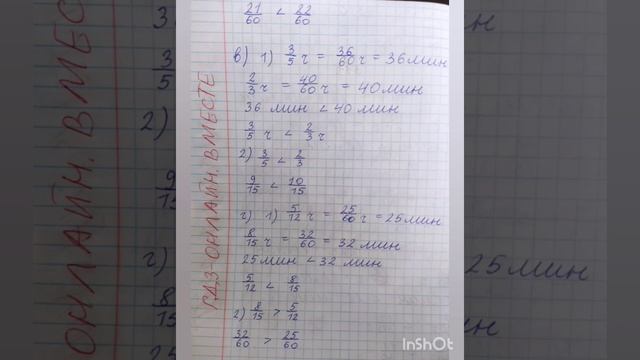 21/60 < 22/60
в) 1) 3/5 ч = 36/60 ч = 36 мин
2/3 ч = 40/60 ч = 40 мин
36 мин < 40 мин
3/5 ч < 2/3 ч
2) 3/5 < 2/3
9/15 < 10/15
г) 1) 5/12 ч = 25/60 ч = 25 мин
8/15 ч = 32/60 = 32 мин
25 мин < 32 мин
5/12 < 8/15
2) 8/15 > 5/12
32/60 > 25/60
ГДЗ-ОНЛАЙН. ВМЕСТЕ
ОНЛАЙН. ВМЕ
3/5
2)
9/15
г)
8/15
25
25 мин
ин
InShOt